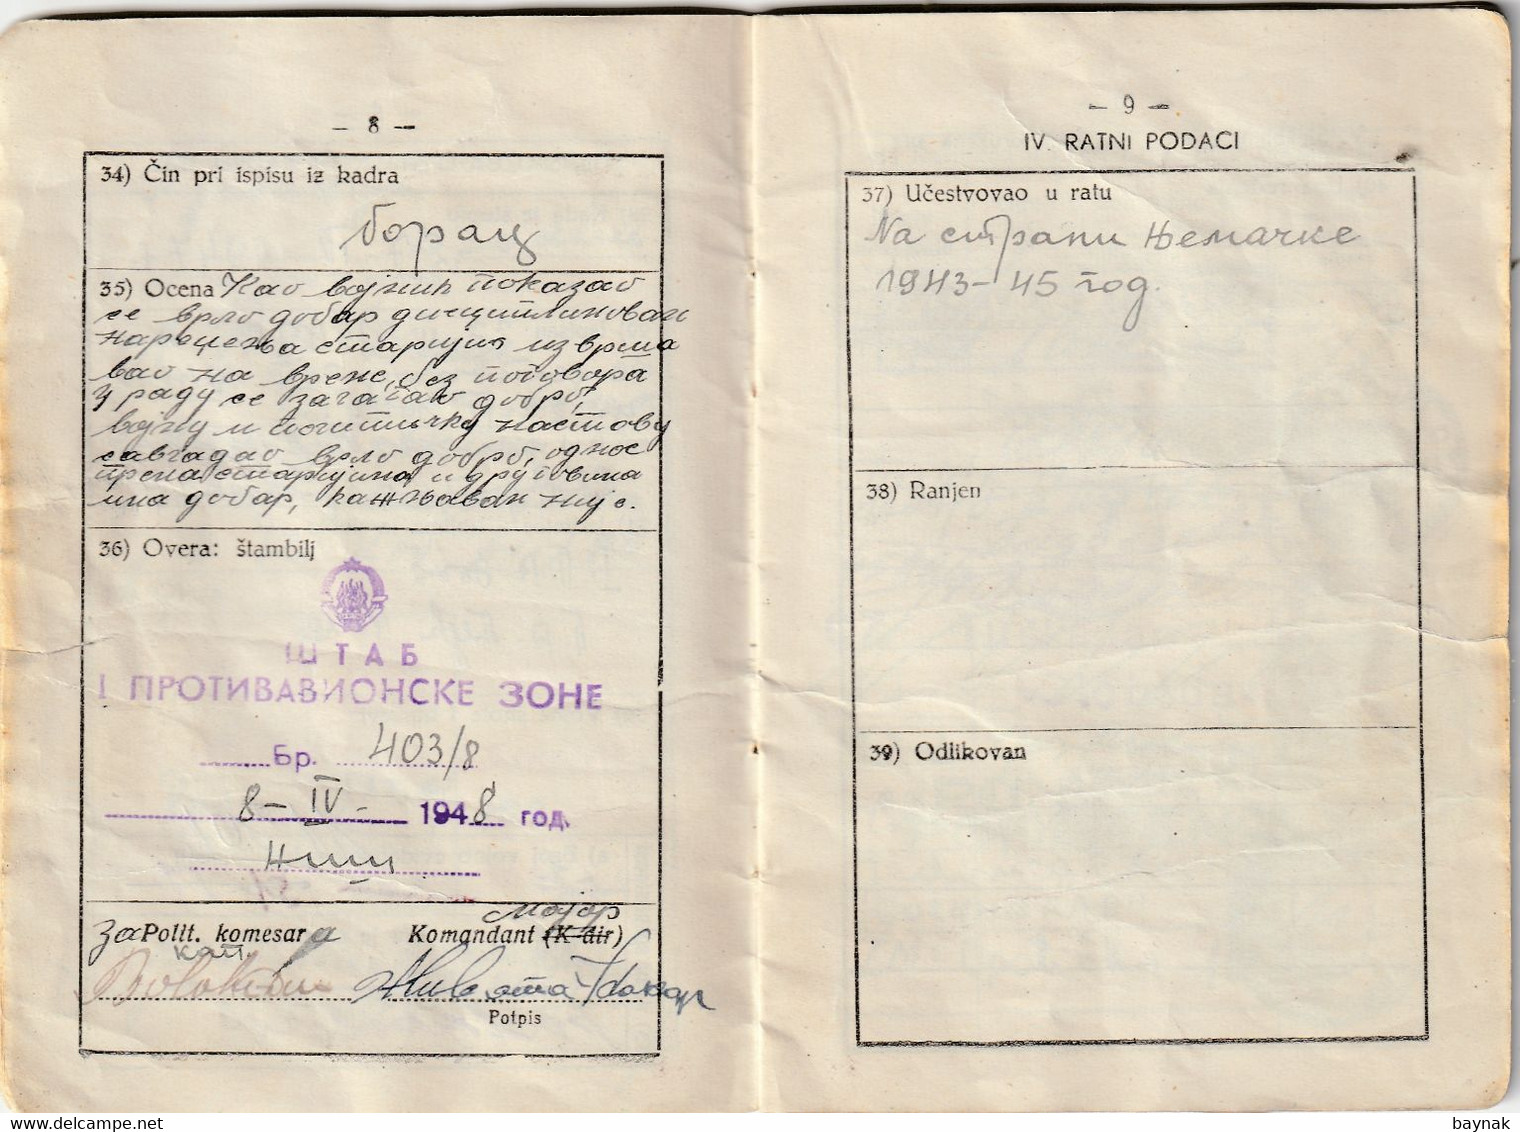 – 8 –
34) Čin pri ispisu iz kadra
борац
35) Ocena Као војник показао
се врло добар дисциплинован
наређења старијих изврша
вао на време, без поговора
у раду се залагао добро,
војну и политичку наставу
савладао врло добро, однос
према старијима и друговима
има добар, кажњаван није.
36) Overa: štambilj
ШТАБ
I ПРОТИВАВИОНСКЕ ЗОНЕ
Бр. 403/8
8 – IV – 1948 год.
Ниш
мајор
за Polit. komesara Komandant (K-dir)
кап.
Живота
Potpis
– 9 –
IV. RATNI PODACI
37) Učestvovao u ratu
На страни Њемачке
1943–45 год.
38) Ranjen
39) Odlikovan
baynak